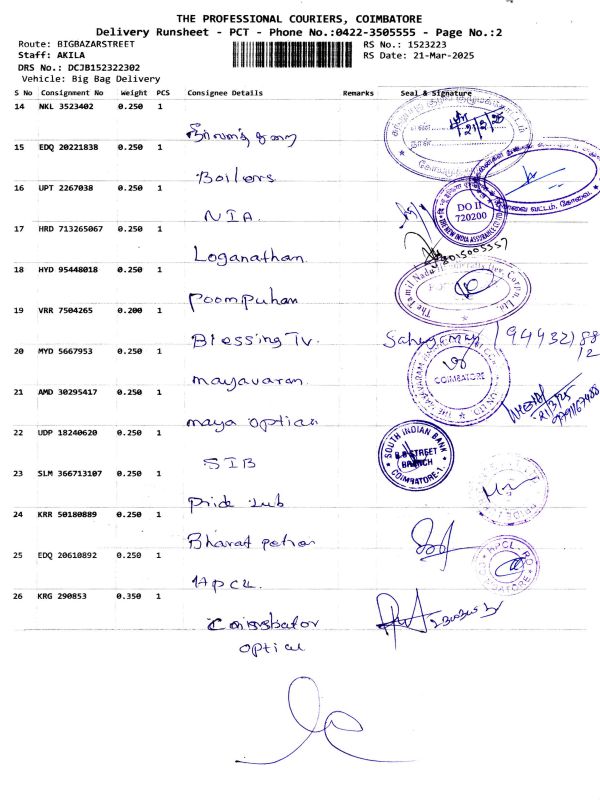 THE PROFESSIONAL COURIERS, COIMBATORE
Delivery Runsheet - PCT - Phone No.:0422-3505555 - Page No.:2
Route: BIGBAZARSTREET RS No.: 1523223
Staff: AKILA RS Date: 21-Mar-2025
DRS No.: DCJB152322302
Vehicle: Big Bag Delivery
S No Consignment No Weight PCS Consignee Details Remarks Seal & Signature
14 NKL 3523402 0.250 1
15 EDQ 20221838 0.250 1
Boilers
16 UPT 2267038 0.250 1
NIA.
DO II
720200
THE NEW INDIA ASSURANCE
17 HRD 713265067 0.250 1
Loganathan
18 HYD 95448018 0.250 1
Poompuhar
The Tamil Nadu Dev. Corpn. Ltd.
19 VRR 7504265 0.200 1
Blessing Tv.
20 MYD 5667953 0.250 1
mayavaran
COIMBATORE
21 AMD 30295417 0.250 1
maya optian
22 UDP 18240620 0.250 1
SIB
SOUTH INDIAN BANK
B.B STREET
BRANCH
COIMBATORE-1.
23 SLM 366713107 0.250 1
Pride Lub
24 KRR 50180889 0.250 1
Bharat petron
25 EDQ 20610892 0.250 1
HPCL.
HPCL-RO
26 KRG 290853 0.350 1
Coimbator
optical